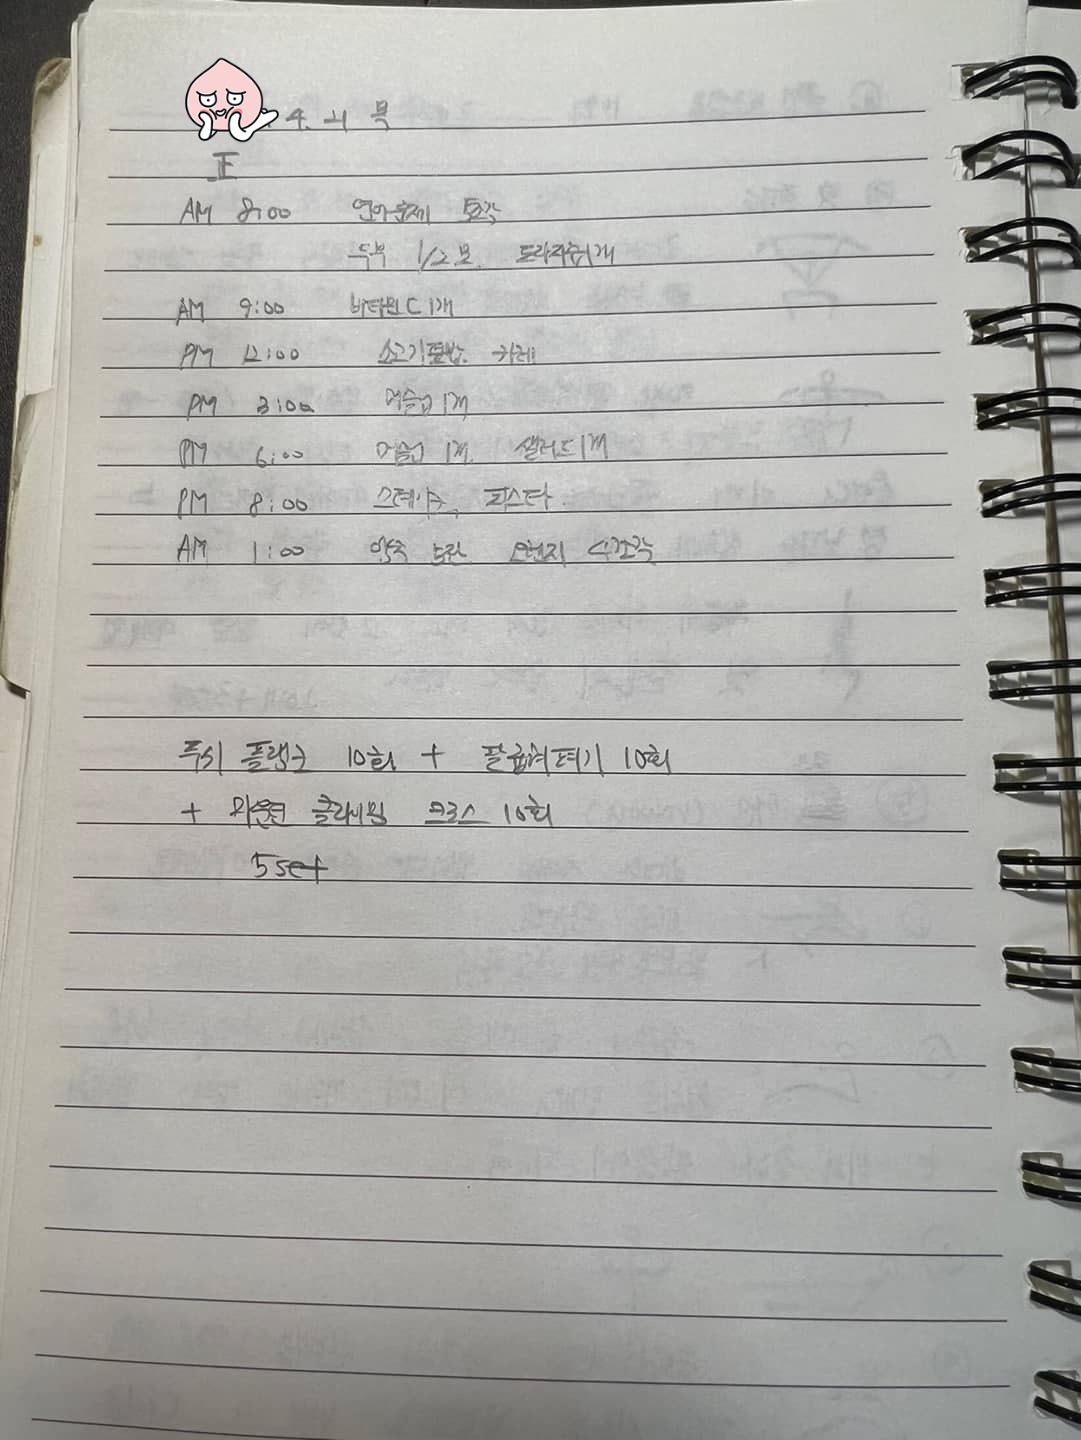 4. 21 목
正
AM 8:00 연어훈제 도각
두부 1/2모. 도라지즙1개
AM 9:00 비타민C 1개
PM 12:00 소고기덮밥. 카레
PM 3:00 머슬업 1개
PM 6:00 머슬업 1개. 샐러드1개
PM 8:00 스테이크, 피스타.
AM 1:00 양죽 오렌지 4조각
푸시 플랭크 10회 + 팔굽혀펴기 10회
+ 마운틴 클라이밍 크로스 10회
5set